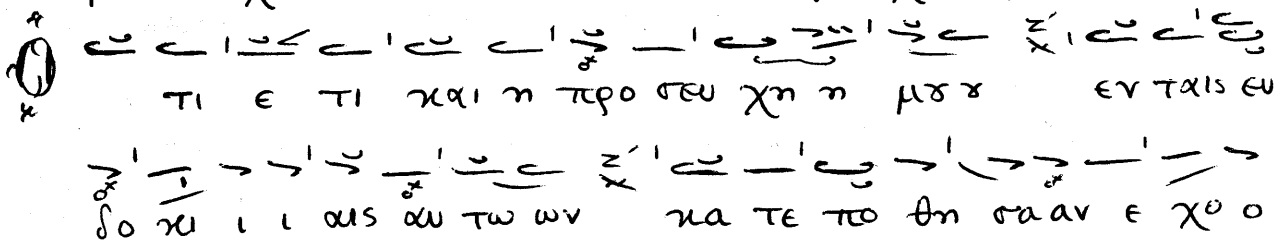 Ο τι ε τι και η προ σευ χη η μȣ ȣ εν ταις ευ
δο κι ι ι αις αυ τω ων κα τε πο θη σα αν ε χο ο